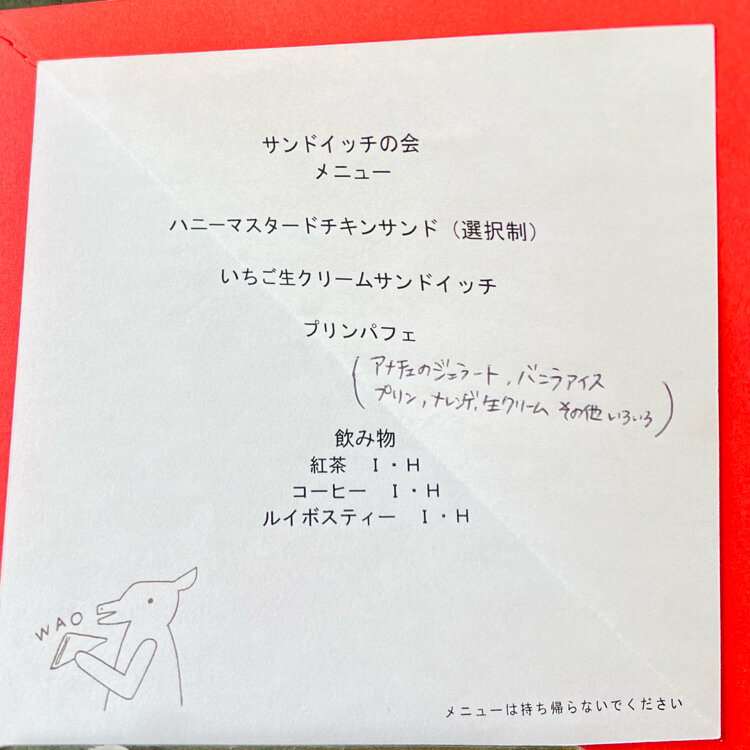 サンドイッチの会
メニュー
ハニーマスタードチキンサンド（選択制）
いちご生クリームサンドイッチ
プリンパフェ
(アナチェのジェラート、バニラアイス
プリン、ナレンゲ、生クリーム その他いろいろ)
飲み物
紅茶　I・H
コーヒー　I・H
ルイボスティー　I・H
WAO
メニューは持ち帰らないでください